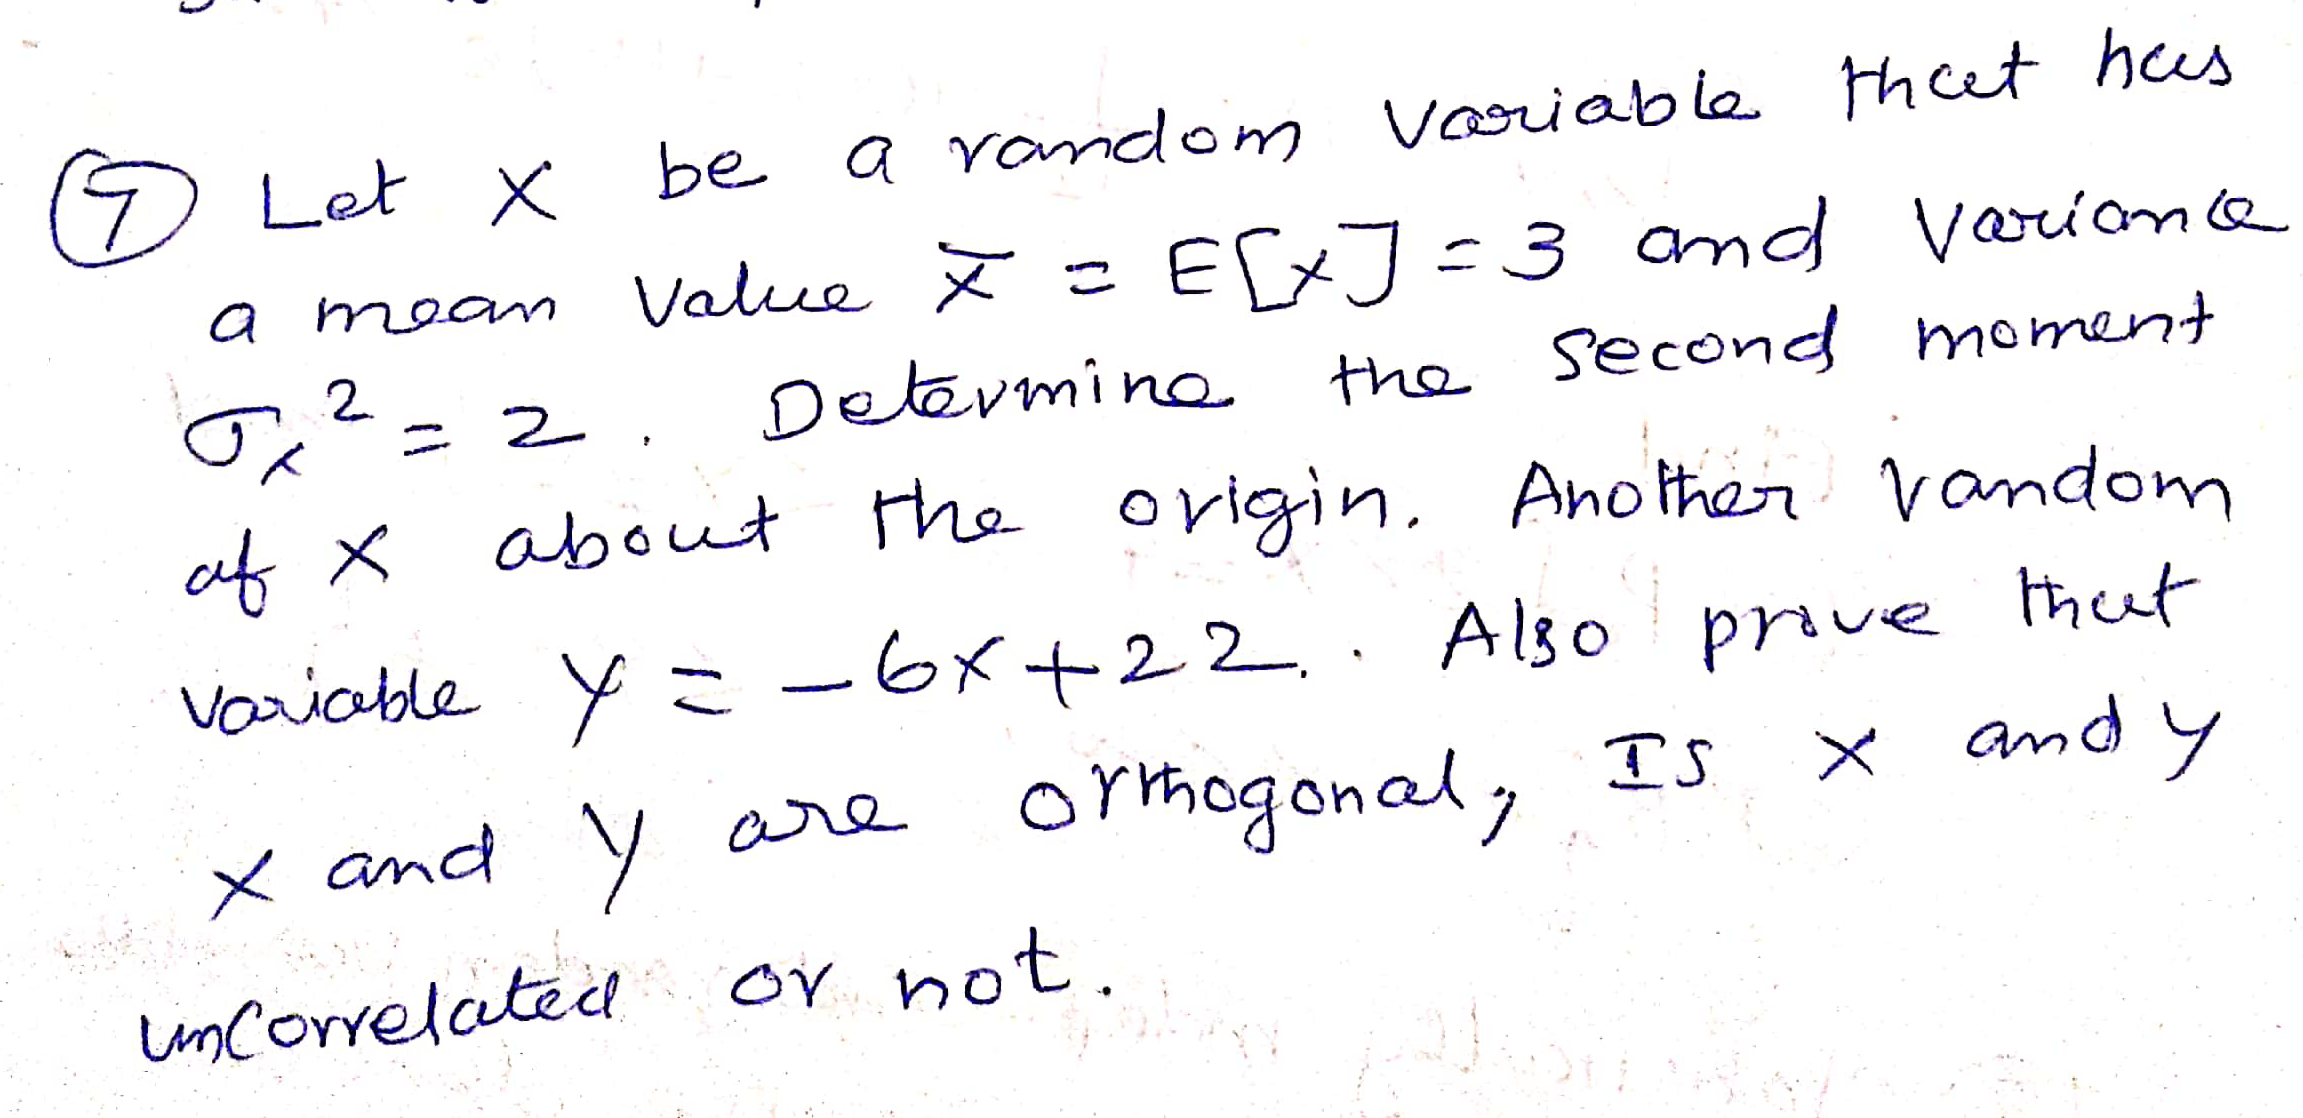 ⑦ Let X be a random variable that has
a mean value X̄ = E[X] = 3 and variance
σₓ² = 2. Determine the second moment
of X about the origin. Another random
variable Y = -6X+22. Also prove that
X and Y are orthogonal, Is X and Y
uncorrelated or not.